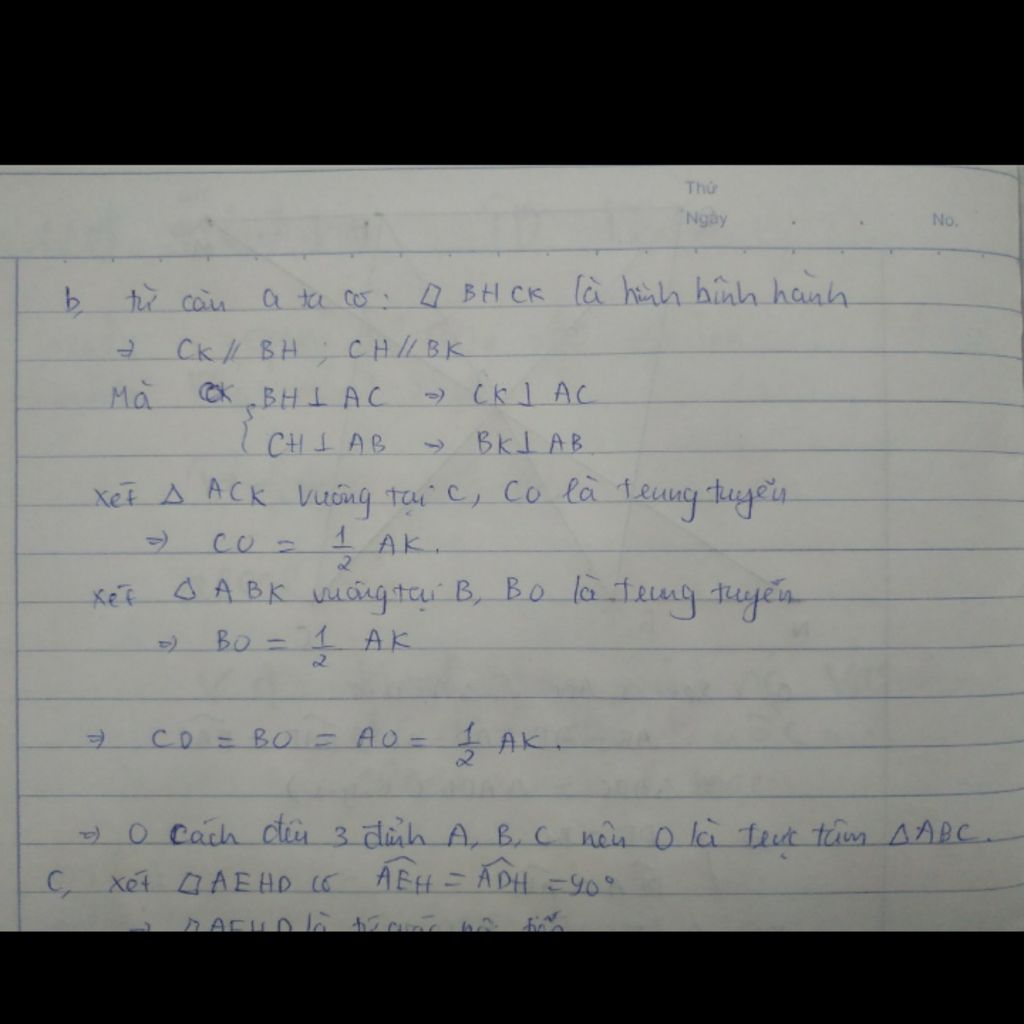 Thứ
Ngày . . No.
b, từ câu a ta có: ▱ BHCK là hình bình hành
=> CK // BH ; CH // BK
Mà BH ⊥ AC => CK ⊥ AC
{ CH ⊥ AB => BK ⊥ AB.
Xét Δ ACK vuông tại C, CO là trung tuyến
=> CO = 1/2 AK.
Xét Δ ABK vuông tại B, BO là trung tuyến
=> BO = 1/2 AK
=> CO = BO = AO = 1/2 AK.
=> O cách đều 3 đỉnh A, B, C nên O là trực tâm ΔABC.
C, Xét ▱AEHD có ∠AEH = ∠ADH = 90°
=> ▱AEHD là tứ giác nội tiếp